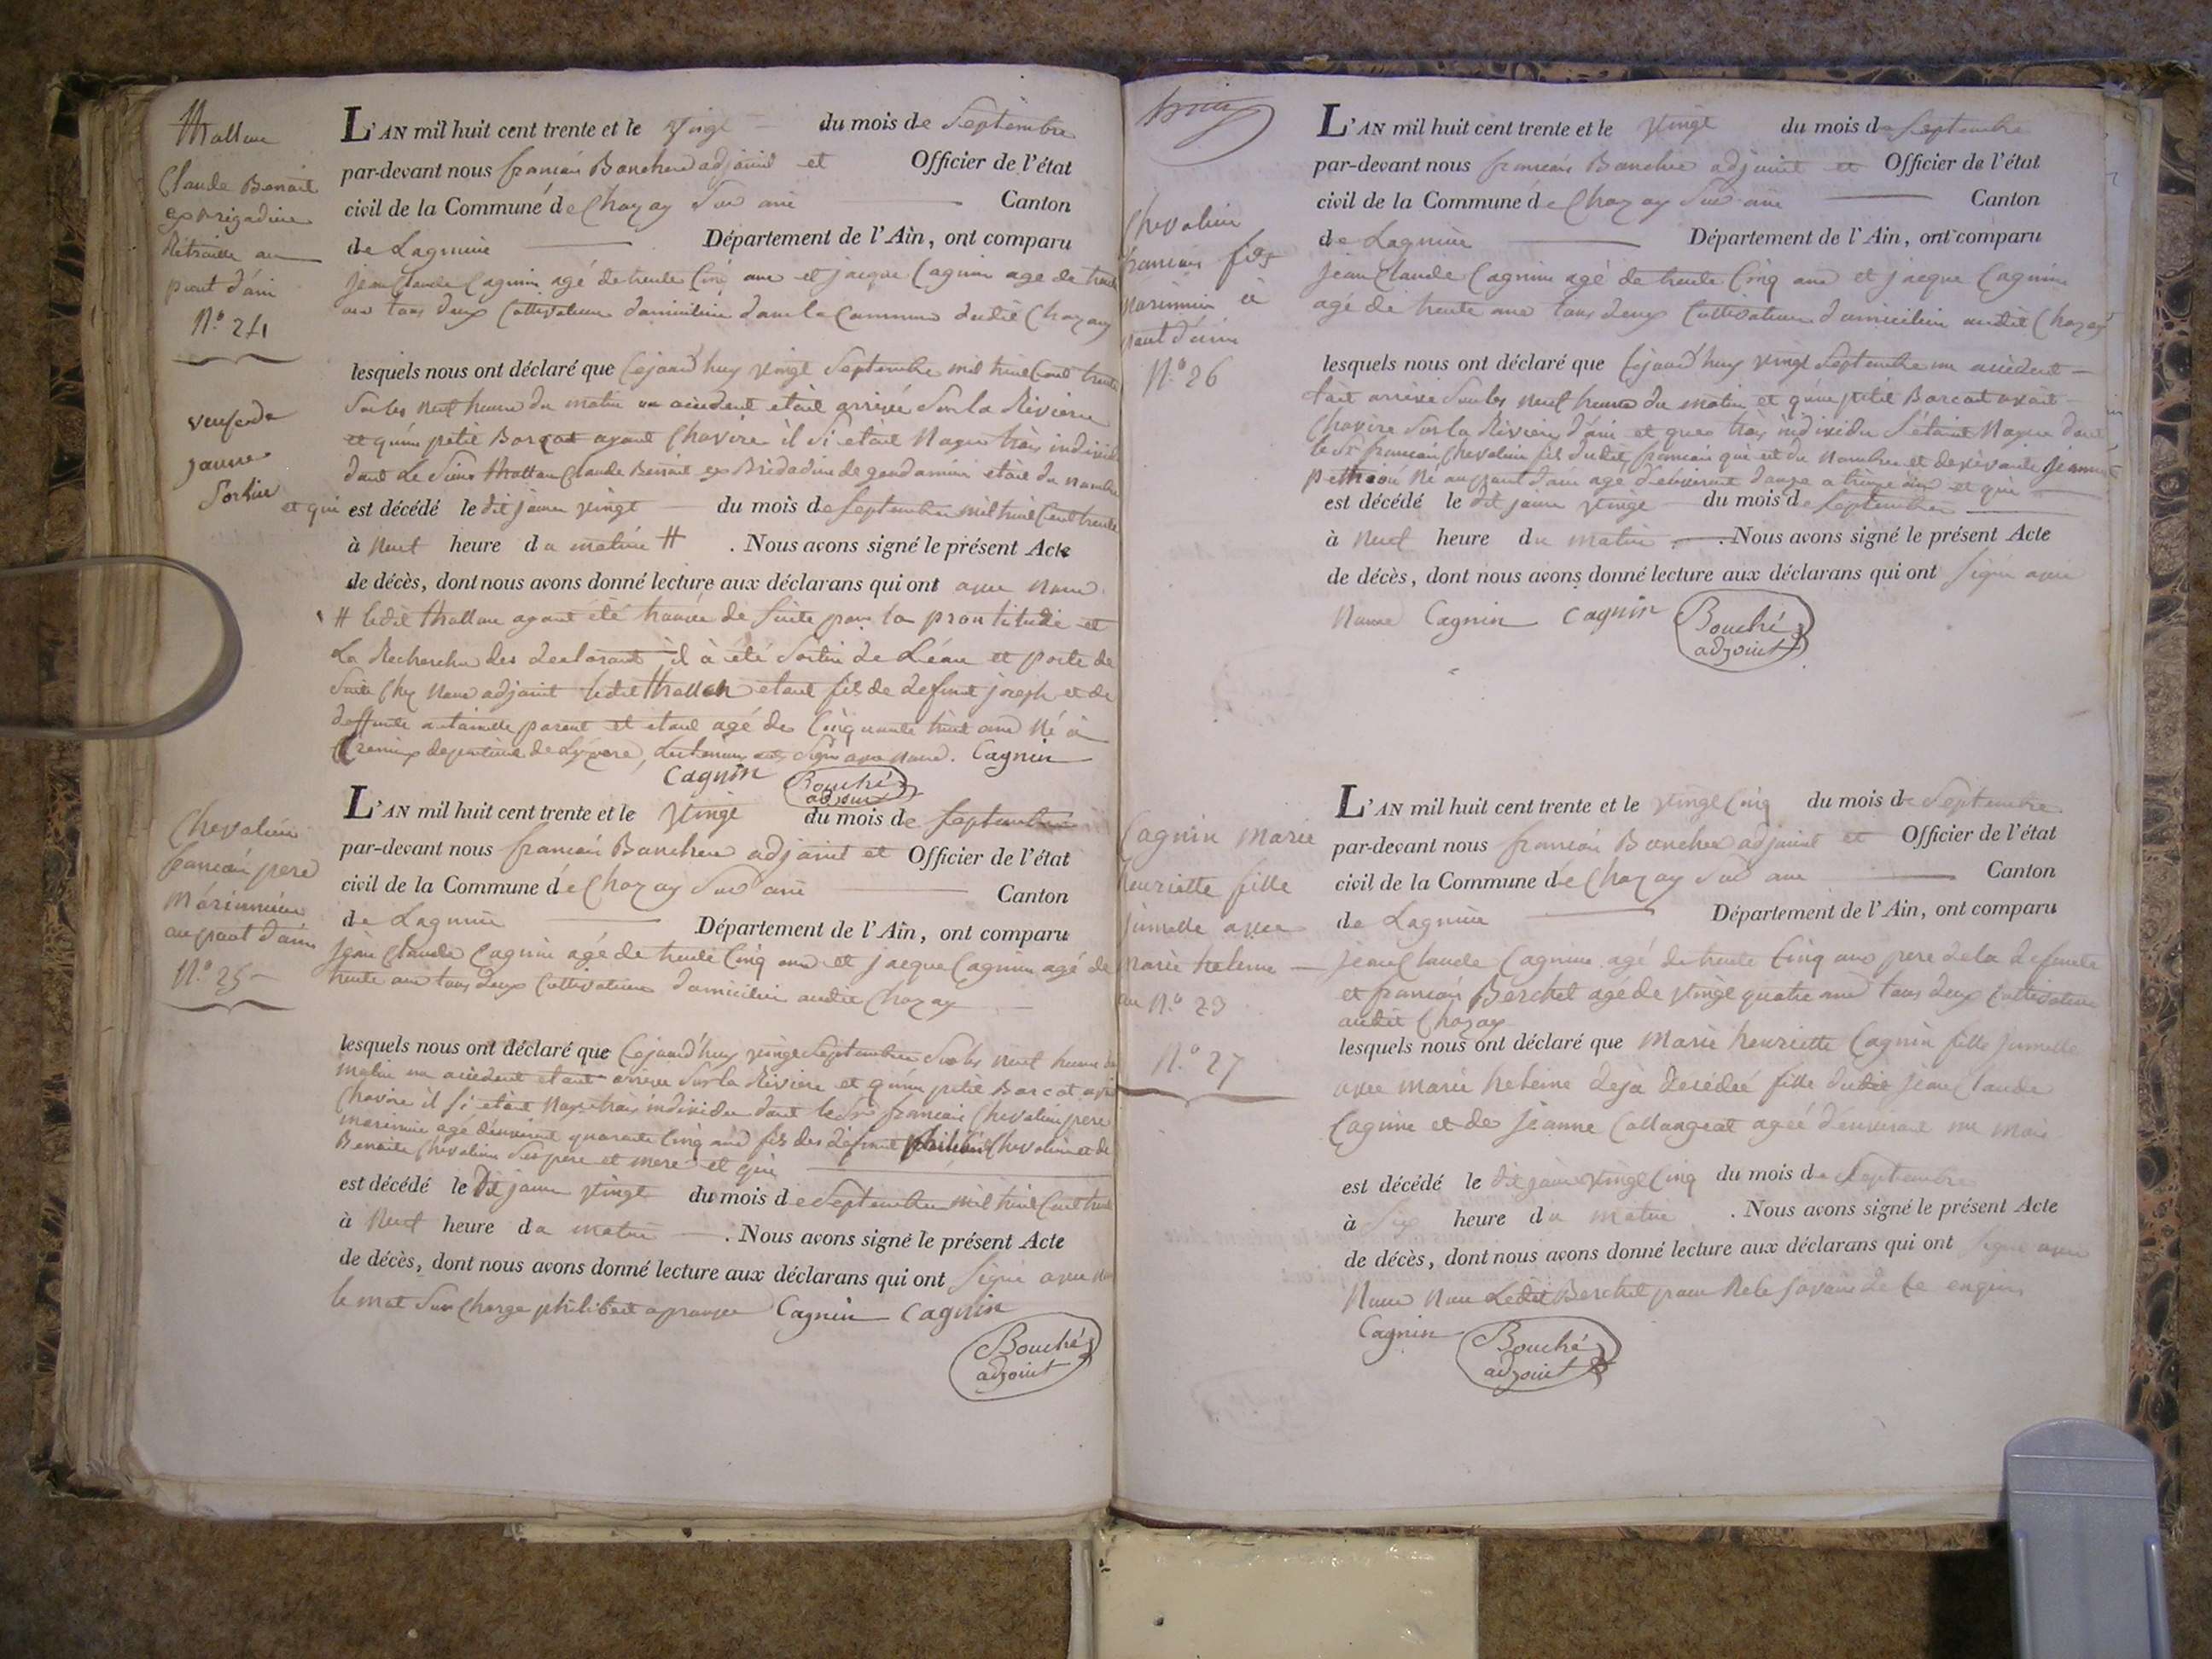 Claude Benoit
ex Brigadier
Retraitté au
pont d'ain
N.° 24
L'AN mil huit cent trente et le vingt du mois de Septembre
par-devant nous francois Boucher adjoint et Officier de l'état
civil de la Commune de Chazay Sur ain Canton
de Lagnieu Département de l'Ain, ont comparu
jean Claude Cagnin agé de trente Cinq ans et jacque Cagnin age de trente
ans tous deux Cultivateurs domicilies dans la Commune dudit Chazay
lesquels nous ont déclaré que Cejourd'huy vingt Septembre mil huit Cent trente
Sur les neuf heure du matin un accident etait arrivée Sur la Riviere
et qu'un petit Barcat ayant Chavire il Si etait Noyer trois individu
dont Le Sieur Claude Benoit ex Bridadier de gendarmerie etait du nombre
et qui est décédé le dit jour vingt du mois de Septembre mil huit Cent trente
à neuf heure du matin # . Nous avons signé le présent Acte
de décès, dont nous avons donné lecture aux déclarans qui ont avec nous
# ledit ayant été trouvée de Suite par la prontitude et
La Recherche des declarant, il à été Sortie de L'éau et porte de
Suite Chez Nous adjoint ledit etant fils de defunt joseph et de
deffunte parent et etant agé de Cinquante huit ans Né à
Cremieux departement de , Signe avec nous. Cagnin
Cagnin Bouché
adjoint
Chevalier
francois pere
Marinnier
au pont d'ain
N.° 25
L'AN mil huit cent trente et le vingt du mois de Septembre
par-devant nous francois Boucher adjoint et Officier de l'état
civil de la Commune de Chazay Sur ain Canton
de Lagnieu Département de l'Ain, ont comparu
Jean Claude Cagnin agé de trente Cinq ans et jacque Cagnin agé de
trente ans tous deux Cultivateurs domicilies audit Chazay
lesquels nous ont déclaré que Cejourd'huy vingt Septembre Sur les neuf heure du
matin un accident etant arrivée Sur la Riviere et qu'un petit Barcat
Chavire il Si etait Noye trois individu dont le Sr francois Chevalier pere
marinnier age d'environt quarante Cinq ans fils des defunt philibert Chevalier et de
Benoite Chevalier Ses pere et mere et qui
est décédé le dit jour vingt du mois de Septembre mil huit Cent trente
à neuf heure du matin . Nous avons signé le présent Acte
de décès, dont nous avons donné lecture aux déclarans qui ont Signé avec nous
le mot Sur Charge philibert aprouver Cagnin Cagnin
Bouché
adjoint
Chevalier
francois fils
marinnier à
pont d'ain
N.° 26
L'AN mil huit cent trente et le vingt du mois de Septembre
par-devant nous francois Boucher adjoint et Officier de l'état
civil de la Commune de Chazay Sur ain Canton
de Lagnieu Département de l'Ain, ont comparu
jean Claude Cagnin agé de trente Cinq ans et jacque Cagnin
agé de trente ans tous deux Cultivateurs domicilies audit Chazay
lesquels nous ont déclaré que Cejourd'huy vingt Septembre un accident
etait arrivée Sur les neuf heures du matin et qu'un petit Barcat avait
Chavire Sur la Riviere d'ain et que trois individu S'étaint Noyer dont
le Sr francois Chevalier fils dudit francois qui est du nombre et de vivante Jeanne
Né au pont d'ain agé d'environt douze a treize ans et qui
est décédé le dit jour vingt du mois de Septembre
à neuf heure du matin . Nous avons signé le présent Acte
de décès, dont nous avons donné lecture aux déclarans qui ont Signe avec
Nous Cagnin Cagnin Bouché
adjoint
Cagnin Marie
henriette fille
jumelle avec
marie helene
au N.° 23
N.° 27
L'AN mil huit cent trente et le vingt Cinq du mois de Septembre
par-devant nous francois Boucher adjoint et Officier de l'état
civil de la Commune de Chazay Sur ain Canton
de Lagnieu Département de l'Ain, ont comparu
jean Claude Cagnin agé de trente Cinq ans pere de la defunte
et francois Berchet age de vingt quatre ans tous deux Cultivateurs
audit Chazay
lesquels nous ont déclaré que Marie henriette Cagnin fille Jumelle
avec marie heleine deja decédeé fille dudit Jean Claude
Cagnin et de Jeanne Collangeat ageé d'environt un mois
est décédé le dit jour vingt Cinq du mois de Septembre
à Six heure du matin . Nous avons signé le présent Acte
de décès, dont nous avons donné lecture aux déclarans qui ont Signe avec
Nous Non Ledit Berchet pour Ne le Savoir de Ce enquis
Cagnin Bouché
adjoint